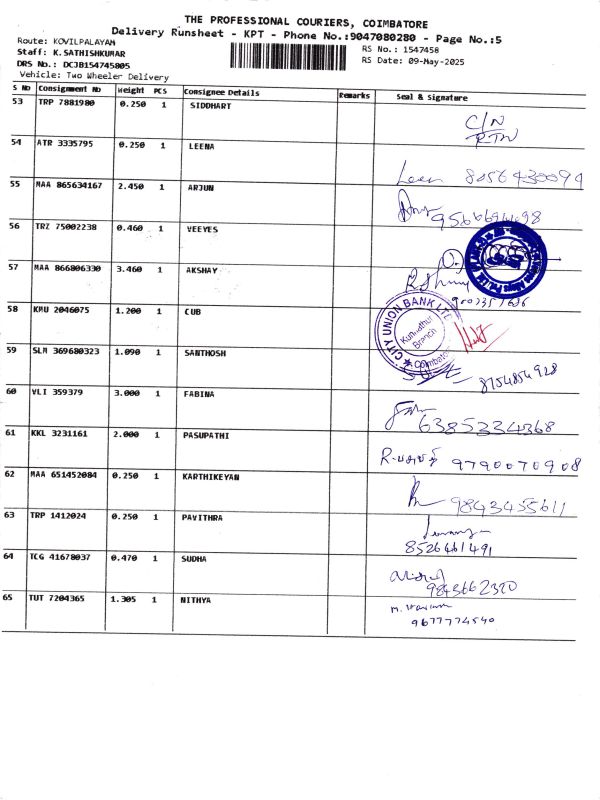 THE PROFESSIONAL COURIERS, COIMBATORE
Delivery Runsheet - KPT - Phone No.:9047080280 - Page No.:5
Route: KOVILPALAYAM
Staff: K.SATHISHKUMAR
DRS No.: DCJB154745805
Vehicle: Two Wheeler Delivery
RS No.: 1547458
RS Date: 09-May-2025
S No Consignment No Weight PCS Consignee Details Remarks Seal & Signature
53 TRP 7881980 0.250 1 SIDDHART C/N
RTN
54 ATR 3335795 0.250 1 LEENA Leen 8056430094
55 MAA 865634167 2.450 1 ARJUN
56 TRZ 75002238 0.460 1 VEEYES
57 MAA 866806330 3.460 1 AKSHAY
58 KMU 2046075 1.200 1 CUB CITY UNION BANK LTD
Branch
Coimbatore
59 SLM 369680323 1.090 1 SANTHOSH 8754854928
60 VLI 359379 3.000 1 FABINA 6385334368
61 KKL 3231161 2.000 1 PASUPATHI 9790070908
62 MAA 651452084 0.250 1 KARTHIKEYAN 9843455611
63 TRP 1412024 0.250 1 PAVITHRA
8526461491
64 TCG 41678037 0.470 1 SUDHA
9843662320
65 TUT 7204365 1.305 1 NITHYA
9677774540